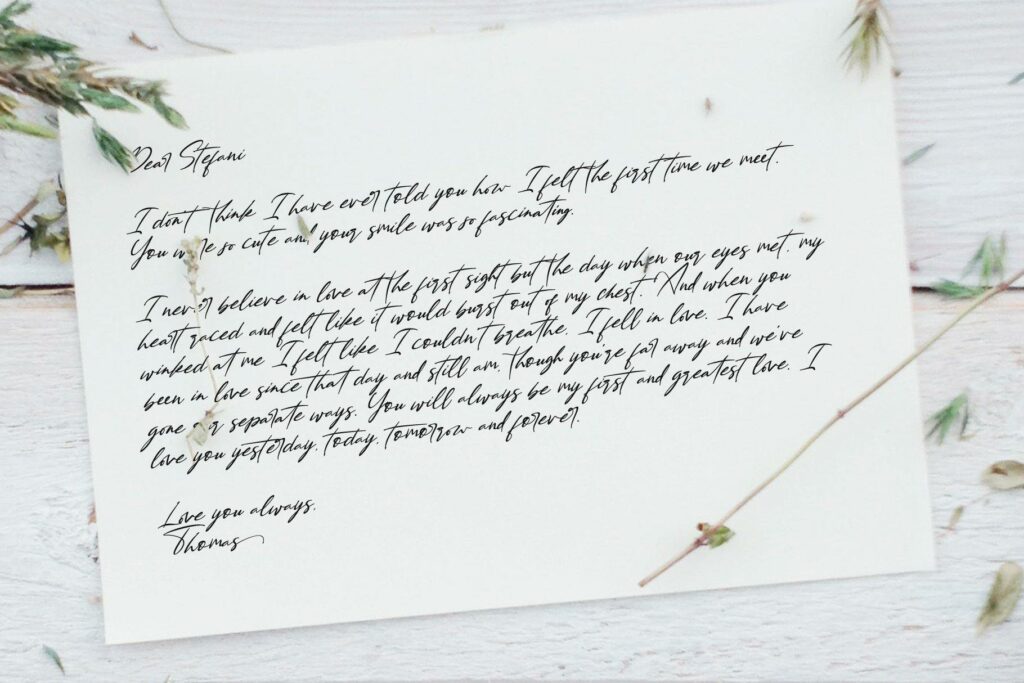 Dear Stefani
I don't think I have ever told you how I felt the first time we meet.
You were so cute and your smile was so fascinating.
I never believe in love at the first sight but the day when our eyes met, my
heart raced and felt like it would burst out of my chest. And when you
winked at me I felt like I couldn't breathe. I fell in love. I have
been in love since that day and still am, though you're far away and we've
gone our separate ways. You will always be my first and greatest love. I
love you yesterday, today, tomorrow and forever.
Love you always,
Thomas